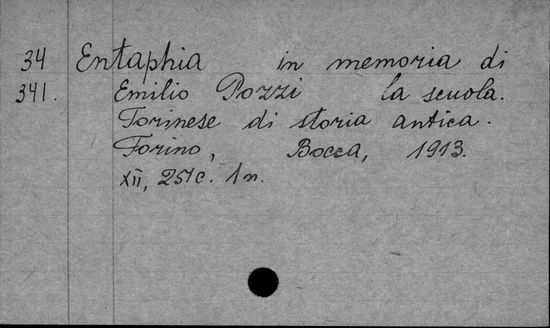 34 Entaphia in memoria di
341. Emilio Pozzi la scuola.
Torinese di storia antica.
Torino, Bocca, 1913.
XII, 251c. 1 п.